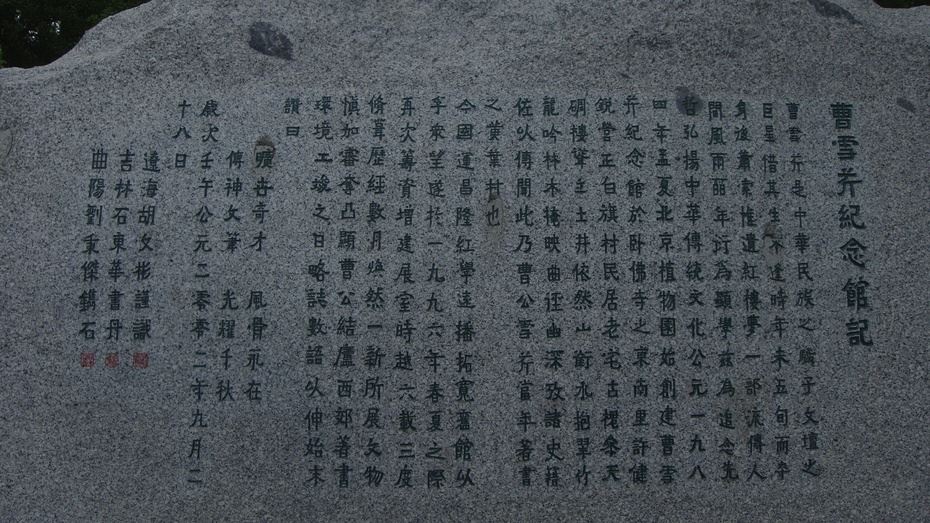 曹雪芹紀念館記
曹雪芹是中華民族之驕子文壇之
巨星惜其生不逢時年未五旬而卒
身後蕭索惟遺紅樓夢一部流傳人
間風雨兩年行為顯學茲為追念先
哲弘揚中華傳統文化公元一九八
四年孟夏北京植物園始創建曹雪
芹紀念館於卧佛寺之東南里許健
銳營正白旗村民居老宅古槐參天
碉樓聳立土井依然山銜水抱翠竹
龍吟林木掩映曲徑幽深攷諸史籍
佐以傳聞此乃曹公雪芹當年著書
之黃葉村也
今國運昌隆紅學遠播拓寬舊館以
孚衆望遂於一九九六年春夏之際
再次籌資增建展室時越六載三度
脩葺歷經數月煥然一新所展文物
慎加審奪凸顯曹公結廬西郊著書
環境工竣之日略誌數語以伸始末
讚曰
曠世奇才 風骨永在
傳神文筆 光耀千秋
歲次壬午公元二零零二年九月二
十八日
遼海胡文彬謹識
吉林石東華書丹
曲陽劉東傑鐫石